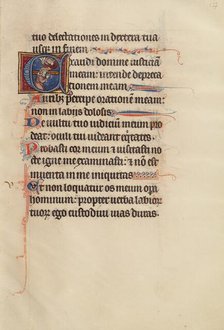 tuo delectationes in dextera tua
usq; in finem
Exaudi domine iusticiam
meam: intende depreca
tionem meam
Auribus percipe orationem meam:
non in labijs dolosis
De vultu tuo iudicium meum pro
deat: oculi tui videant equitates
Probasti cor meum et visitasti no
cte: igne me examinasti: et non est
inventa in me iniquitas
Ut non loquatur os meum opera
hominum: propter verba labior
tuor ego custodivi vias duras